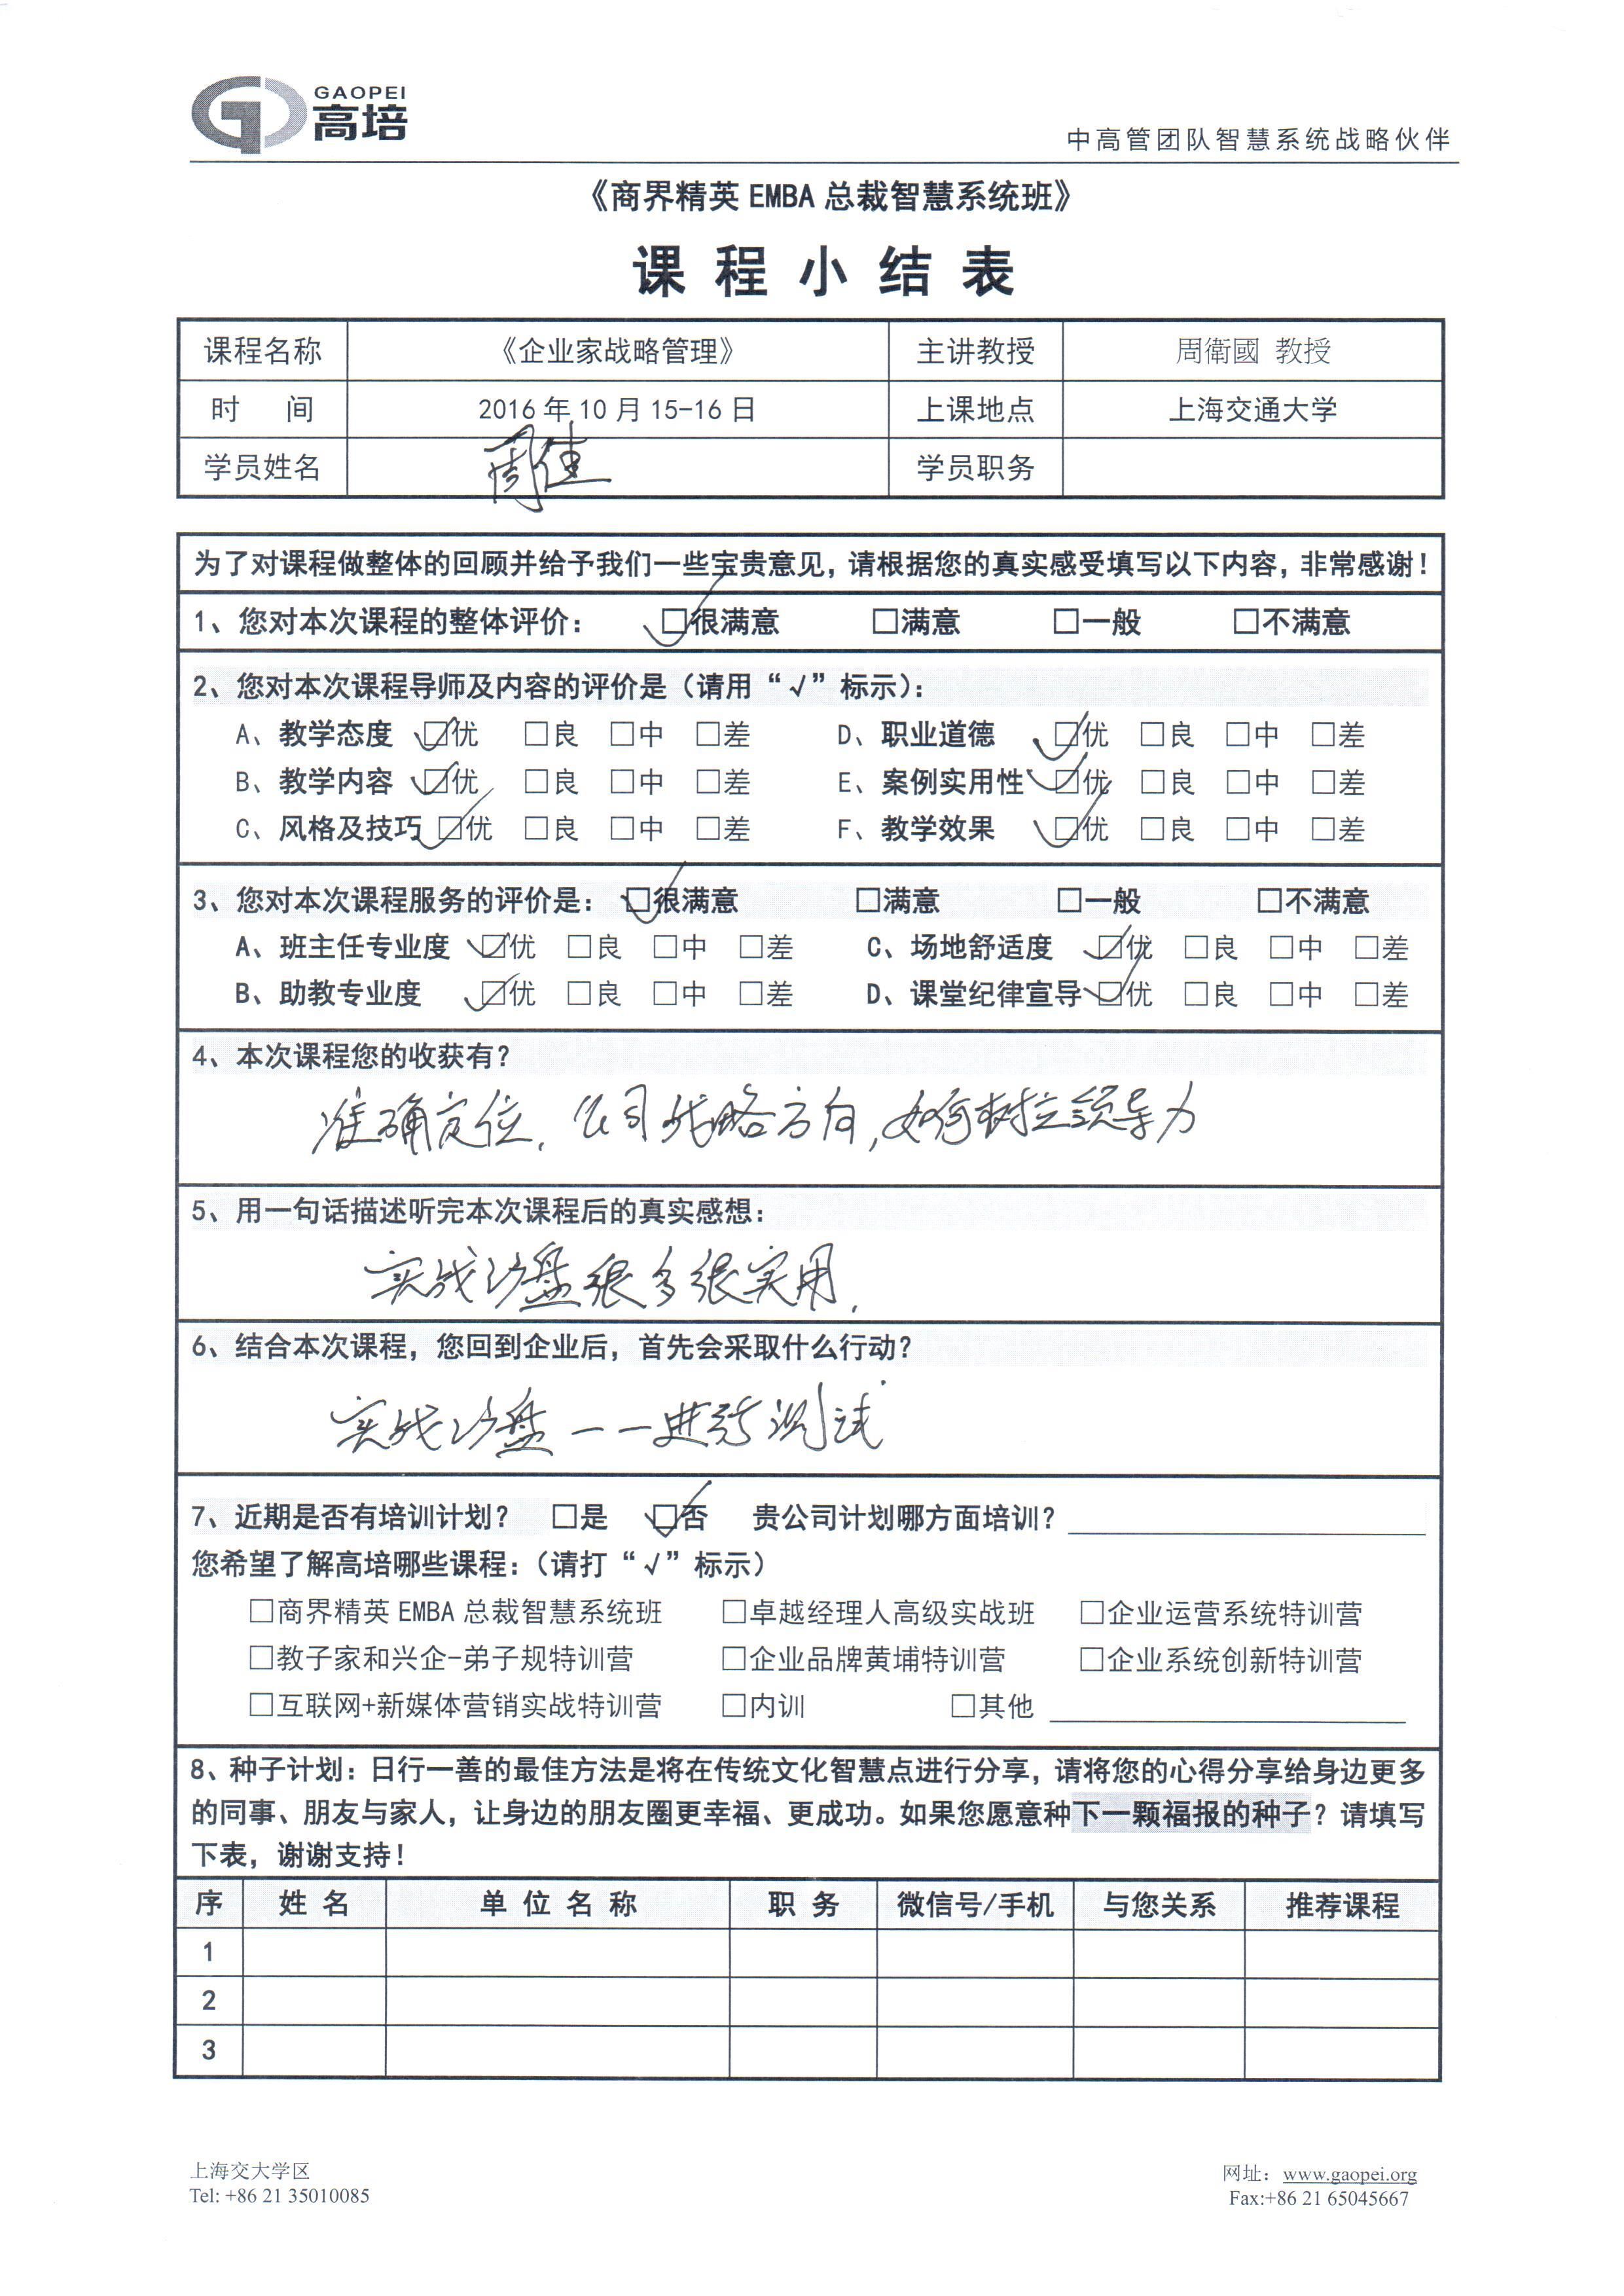 GAOPEI
高培
中高管团队智慧系统战略伙伴
《商界精英 EMBA 总裁智慧系统班》
课 程 小 结 表
课程名称 《企业家战略管理》 主讲教授 周衛國 教授
时 间 2016 年 10 月 15-16 日 上课地点 上海交通大学
学员姓名 周佳 学员职务
为了对课程做整体的回顾并给予我们一些宝贵意见，请根据您的真实感受填写以下内容，非常感谢！
1、您对本次课程的整体评价： ☑很满意 □满意 □一般 □不满意
2、您对本次课程导师及内容的评价是（请用“√”标示）：
A、教学态度 ☑优 □良 □中 □差 D、职业道德 ☑优 □良 □中 □差
B、教学内容 ☑优 □良 □中 □差 E、案例实用性 ☑优 □良 □中 □差
C、风格及技巧 ☑优 □良 □中 □差 F、教学效果 ☑优 □良 □中 □差
3、您对本次课程服务的评价是： ☑很满意 □满意 □一般 □不满意
A、班主任专业度 ☑优 □良 □中 □差 C、场地舒适度 ☑优 □良 □中 □差
B、助教专业度 ☑优 □良 □中 □差 D、课堂纪律宣导 ☑优 □良 □中 □差
4、本次课程您的收获有？
准确定位，公司战略方向，如何树立领导力
5、用一句话描述听完本次课程后的真实感想：
实战沙盘很多很实用．
6、结合本次课程，您回到企业后，首先会采取什么行动？
实战沙盘一一进行测试
7、近期是否有培训计划？ □是 ☑否 贵公司计划哪方面培训？
您希望了解高培哪些课程：（请打“√”标示）
□商界精英 EMBA 总裁智慧系统班 □卓越经理人高级实战班 □企业运营系统特训营
□教子家和兴企-弟子规特训营 □企业品牌黄埔特训营 □企业系统创新特训营
□互联网+新媒体营销实战特训营 □内训 □其他
8、种子计划：日行一善的最佳方法是将在传统文化智慧点进行分享，请将您的心得分享给身边更多
的同事、朋友与家人，让身边的朋友圈更幸福、更成功。如果您愿意种下一颗福报的种子？请填写
下表，谢谢支持！
序 姓 名 单 位 名 称 职 务 微信号/手机 与您关系 推荐课程
1
2
3
上海交大学区 网址：www.gaopei.org
Tel: +86 21 35010085 Fax:+86 21 65045667